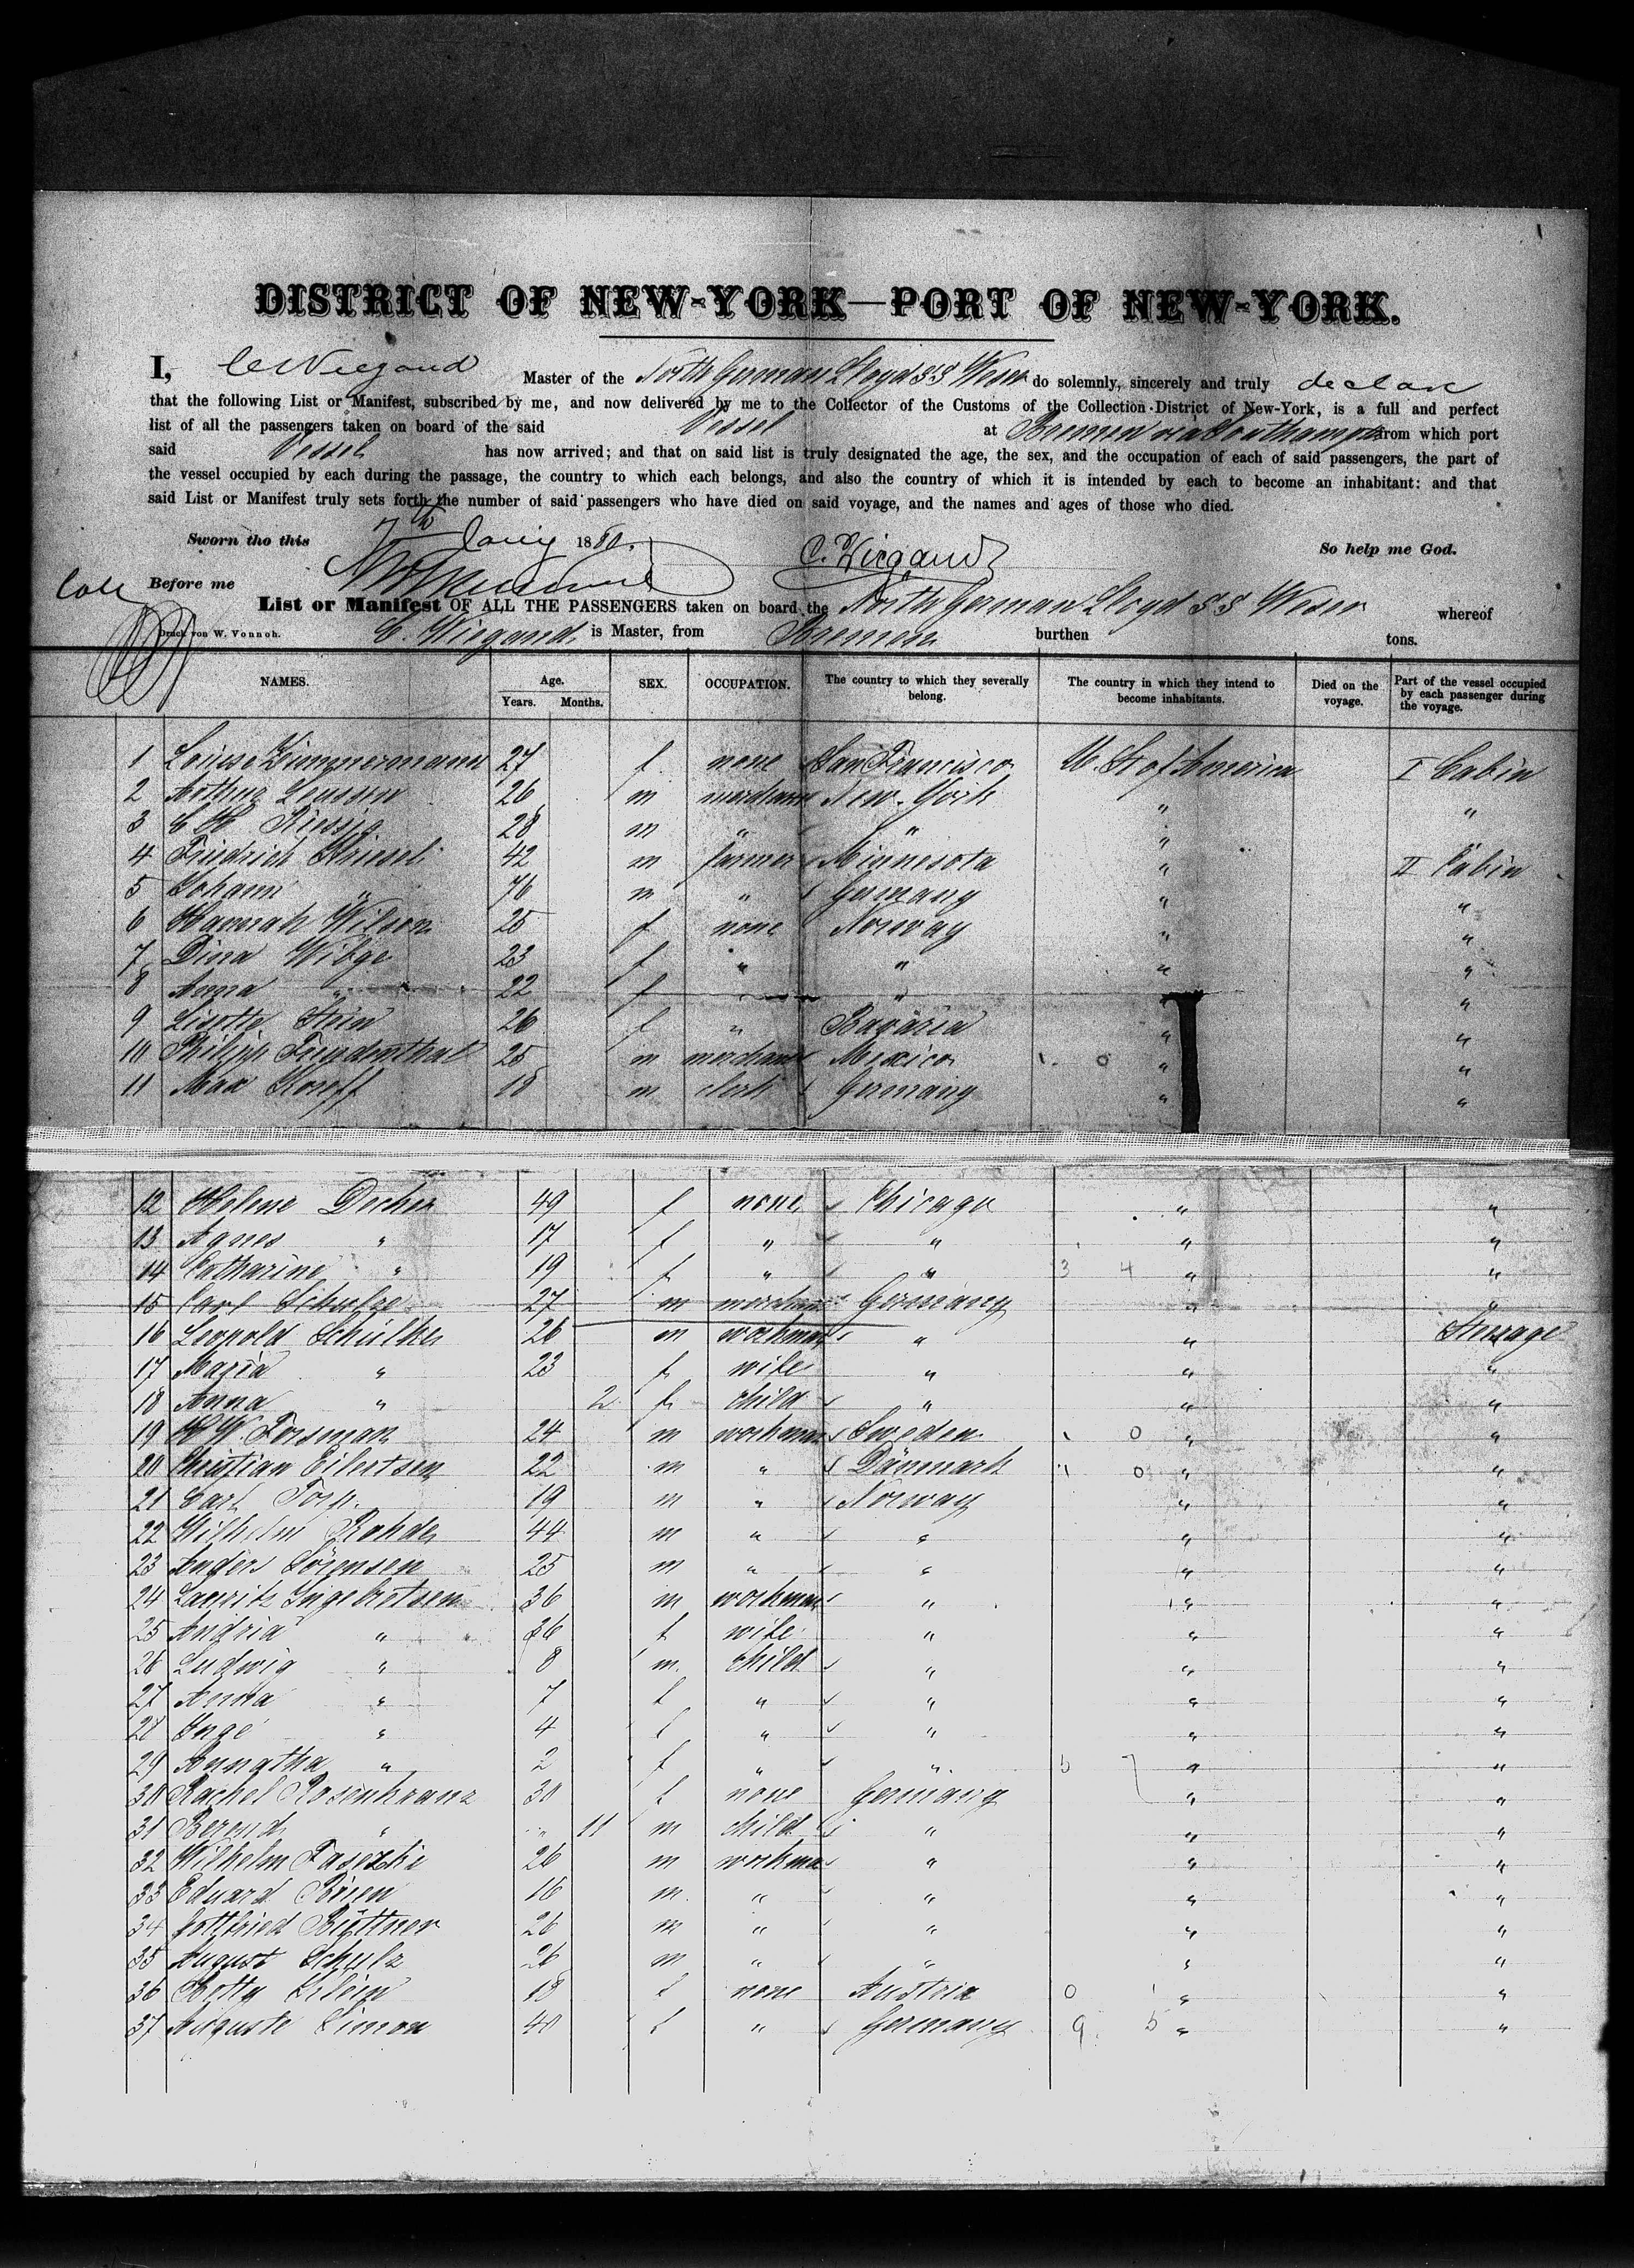 DISTRICT OF NEW-YORK—PORT OF NEW-YORK.
I, C. Wiegand Master of the North German Lloyd SS Weser do solemnly, sincerely and truly declare
that the following List or Manifest, subscribed by me, and now delivered by me to the Collector of the Customs of the Collection District of New-York, is a full and perfect
list of all the passengers taken on board of the said Vessel at Bremen via Southampton from which port
said Vessel has now arrived; and that on said list is truly designated the age, the sex, and the occupation of each of said passengers, the part of
the vessel occupied by each during the passage, the country to which each belongs, and also the country of which it is intended by each to become an inhabitant: and that
said List or Manifest truly sets forth the number of said passengers who have died on said voyage, and the names and ages of those who died.
Sworn tho this 7th 1880. C. Wiegand So help me God.
Before me
List or Manifest OF ALL THE PASSENGERS taken on board the North German Lloyd SS Weser whereof
Druck von W. Vonnoh. C. Wiegand is Master, from Bremen burthen tons.
NAMES. Age. Years. Months. SEX. OCCUPATION. The country to which they severally belong. The country in which they intend to become inhabitants. Died on the voyage. Part of the vessel occupied by each passenger during the voyage.
1 Louise Zimmermann 27 f none San Francisco U. St of America I Cabin
2 Arthur 26 m merchant New-York " "
3 28 m " " " "
4 Friedrich 42 m farmer Minnesota " II Cabin
5 Johann " 76 m " Germany " "
6 Hannah Wilson 25 f none Norway " "
7 Dina Wibge 23 f " " " "
8 Anna " 22 f " " " "
9 Lisette Stein 26 f " Bavaria " "
10 Philipp Freudenthal 25 m merchant Mexico " "
11 Max 18 m clerk Germany " "
12 Helene Decker 49 f none Chicago " "
13 Agnes " 17 f " " " "
14 Catharine " 19 f " " 3 4 " "
15 Carl Schulze 27 m merchant Germany " "
16 Leopold Schülke 26 m workman " " Steerage
17 Maria " 23 f wife " " "
18 Anna " 2 f child " " "
19 H. W. Forsman 24 m workman Sweden 1 0 " "
20 Christian Eilertsen 22 m " Dänmark 1 0 " "
21 Carl Torp. 19 m " Norway " "
22 Wilhelm Rohde 44 m " " " "
23 Anders Sörensen 25 m " " " "
24 Lauritz Ingebretsen 36 m workman " " "
25 Andria " 36 f wife " " "
26 Ludwig " 8 m. child " " "
27 Anna " 7 f " " " "
28 Inge " 4 f " " " "
29 Annatha " 2 f " " 5 7 " "
30 Rachel Rosenkranz 30 f none Germany " "
31 Berend " " 11 m child " " "
32 Wilhelm 26 m workman " " "
33 Eduard 16 m. " " " "
34 Gottfried Büttner 26 m " " " "
35 August Schulz 26 m " " " "
36 18 f none Austria 0 1 " "
37 Auguste Simon 40 f " Germany 9. 5 " "